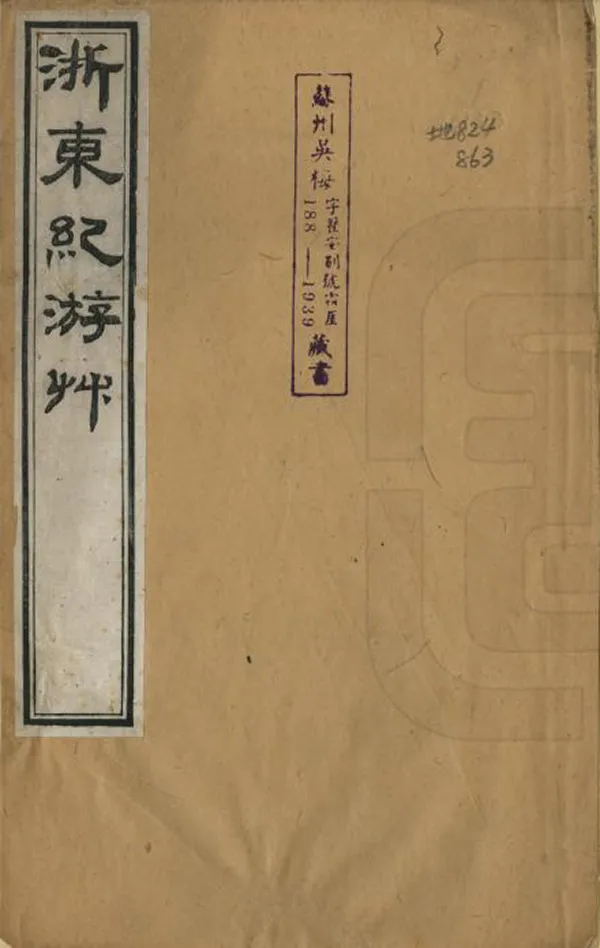 浙東紀游艸
蘇州吳梅字瞿安別號霜厓188 —1939藏書
地824
863